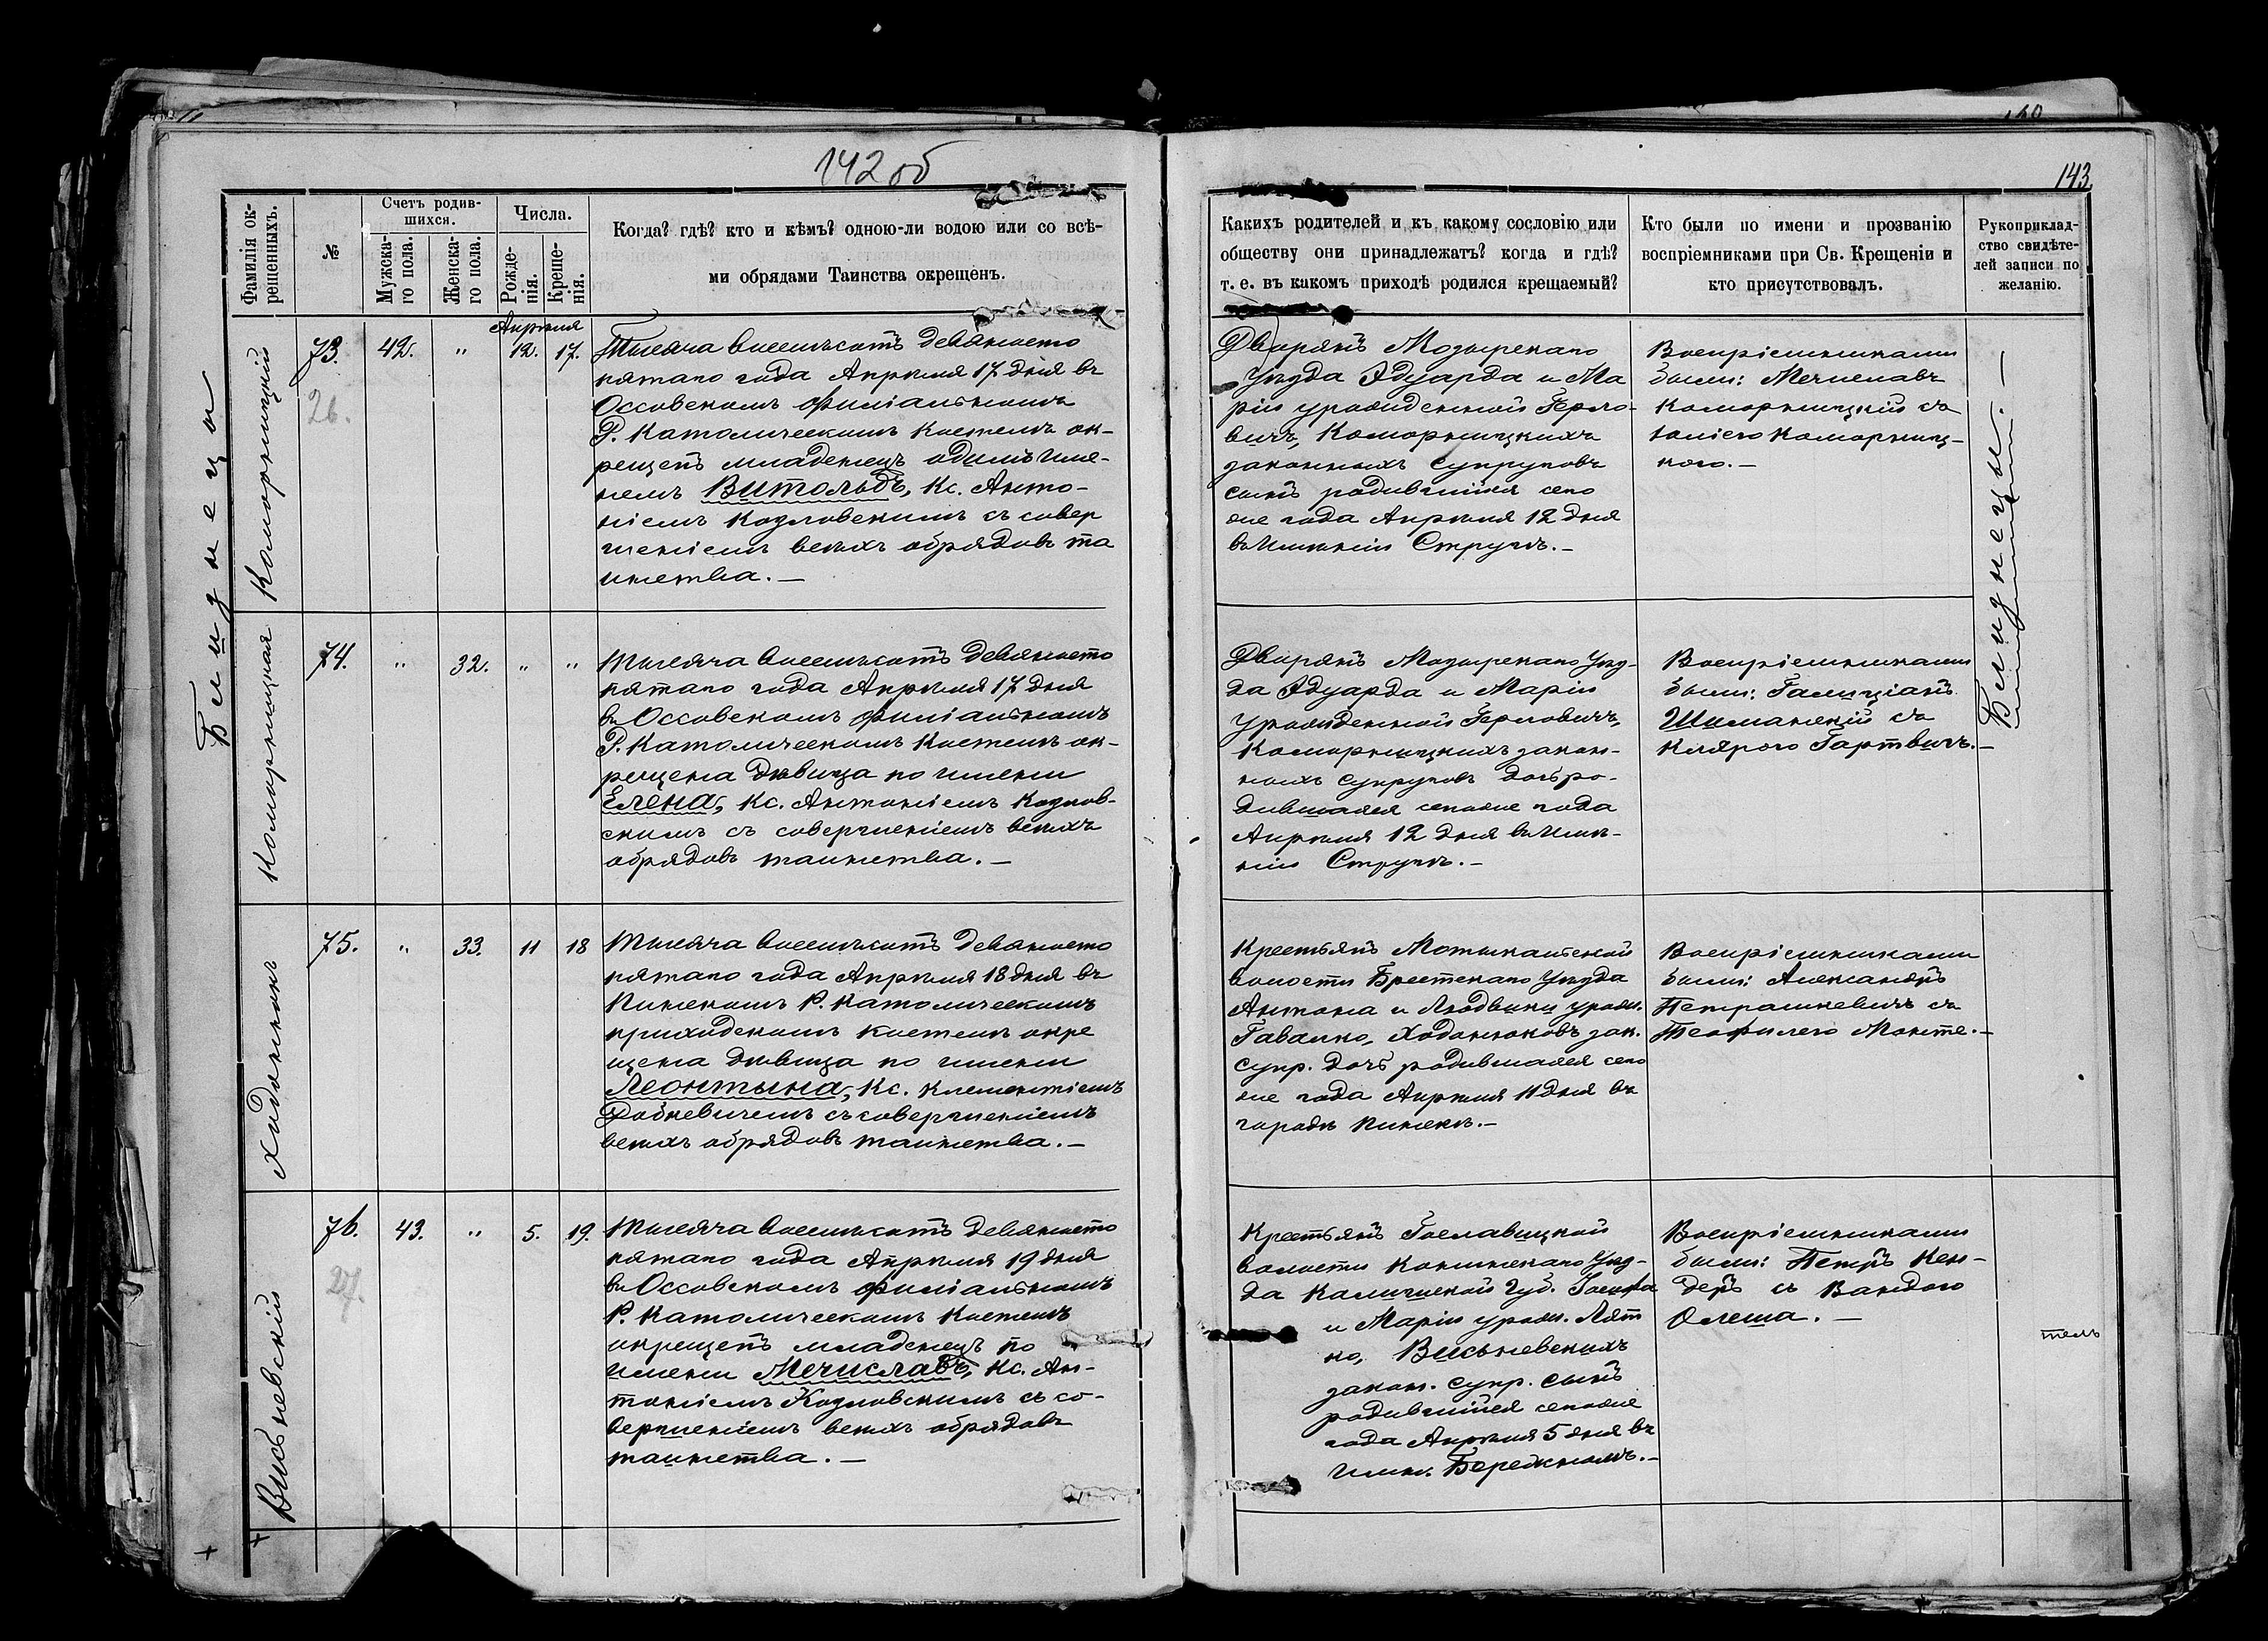 142 об
Фамилія ок-
рещенныхъ.
№
Счетъ родив-
шихся.
Мужска-
го пола.
Женска-
го пола.
Числа.
Рожде-
нія.
Креще-
нія.
Когда? гдѣ? кто и кѣмъ? одною-ли водою или со всѣ-
ми обрядами Таинства окрещенъ.
Близнецы
Коморницкій
73.
26.
42.
"
Апрѣля
12.
17.
Тысяча восемьсотъ девяносто
пятаго года Апрѣля 17 дня въ
Оссовскомъ филіальномъ
Р. Католическомъ костелѣ ок-
рещенъ младенецъ однимъ име-
немъ Витольдъ, Кс. Анто-
ніемъ Козловскимъ съ совер
шеніемъ всѣхъ обрядовъ та
инства. —
Коморницкая
74.
"
32.
"
"
Тысяча восемьсотъ девяносто
пятаго года Апрѣля 17 дня
въ Оссовскомъ филіальномъ
Р. Католическомъ костелѣ ок-
рещена дѣвица по имени
Елена, Кс. Антоніемъ Козлов-
скимъ съ совершеніемъ всѣхъ
обрядовъ таинства. —
Ходонюкъ
75.
"
33.
11
18
Тысяча восемьсотъ девяносто
пятаго года Апрѣля 18 дня въ
Пинскомъ Р. Католическомъ
приходскомъ костелѣ окре
щена дѣвица по имени
Леонтына, Кс. Клементіемъ
съ совершеніемъ
всѣхъ обрядовъ таинства. —
Висьневскій
76.
27.
43.
"
5.
19.
Тысяча восемьсотъ девяносто
пятаго года Апрѣля 19 дня
въ Оссовскомъ филіальномъ
Р. Католическомъ костелѣ
окрещенъ младенецъ по
имени Мечиславъ, Кс. Ан-
тоніемъ Козловскимъ съ со-
вершеніемъ всѣхъ обрядовъ
таинства. —
143
Какихъ родителей и къ какому сословію или
обществу они принадлежатъ? когда и гдѣ?
т. е. въ какомъ приходѣ родился крещаемый?
Кто были по имени и прозванію
воспріемниками при Св. Крещеніи и
кто присутствовалъ.
Рукоприклад-
ство свидѣте-
лей записи по
желанію.
Дворянъ Мозырскаго
Уѣзда Эдуарда и Ма
ріи урожденной Герло-
вичъ, Коморницкихъ
законныхъ супруговъ
сынъ родившійся сего
же года Апрѣля 12 дня
въ имѣніи Струги. —
Воспріемниками
были: Мечиславъ
Коморницкій съ
Юліею Коморниц-
кою. —
Близнецы. —
Дворянъ Мозырскаго Уѣз-
да Эдуарда и Маріи
урожденной Герловичъ,
Коморницкихъ закон-
ныхъ супруговъ дочь ро-
дившаяся сегоже года
Апрѣля 12 дня въ имѣ-
ніи Струги. —
Воспріемниками
были: Галиціанъ
Шиманскій съ
Клярою Гартвичъ. —
Крестьянъ Мотыкальской
волости Брестскаго Уѣзда
Антона и Людвики урожд.
Гавалко, Ходонюковъ зак.
супр. дочь родившаяся сего
же года Апрѣля 11 дня въ
городѣ Пинскѣ. —
Воспріемниками
были: Александръ
Петрашкевичъ съ
Теофилею Монте. —
Крестьянъ Гославицкой
волости Конинскаго Уѣз-
да Калишской Губ. Іосифа
и Маріи урожд. Лят
ко, Висьневскихъ
закон. супр. сынъ
родившійся сегоже
года Апрѣля 5 дня въ
имѣн. Бережномъ. —
Воспріемниками
были: Петръ Кен-
деръ съ Вандою
Олеша. —